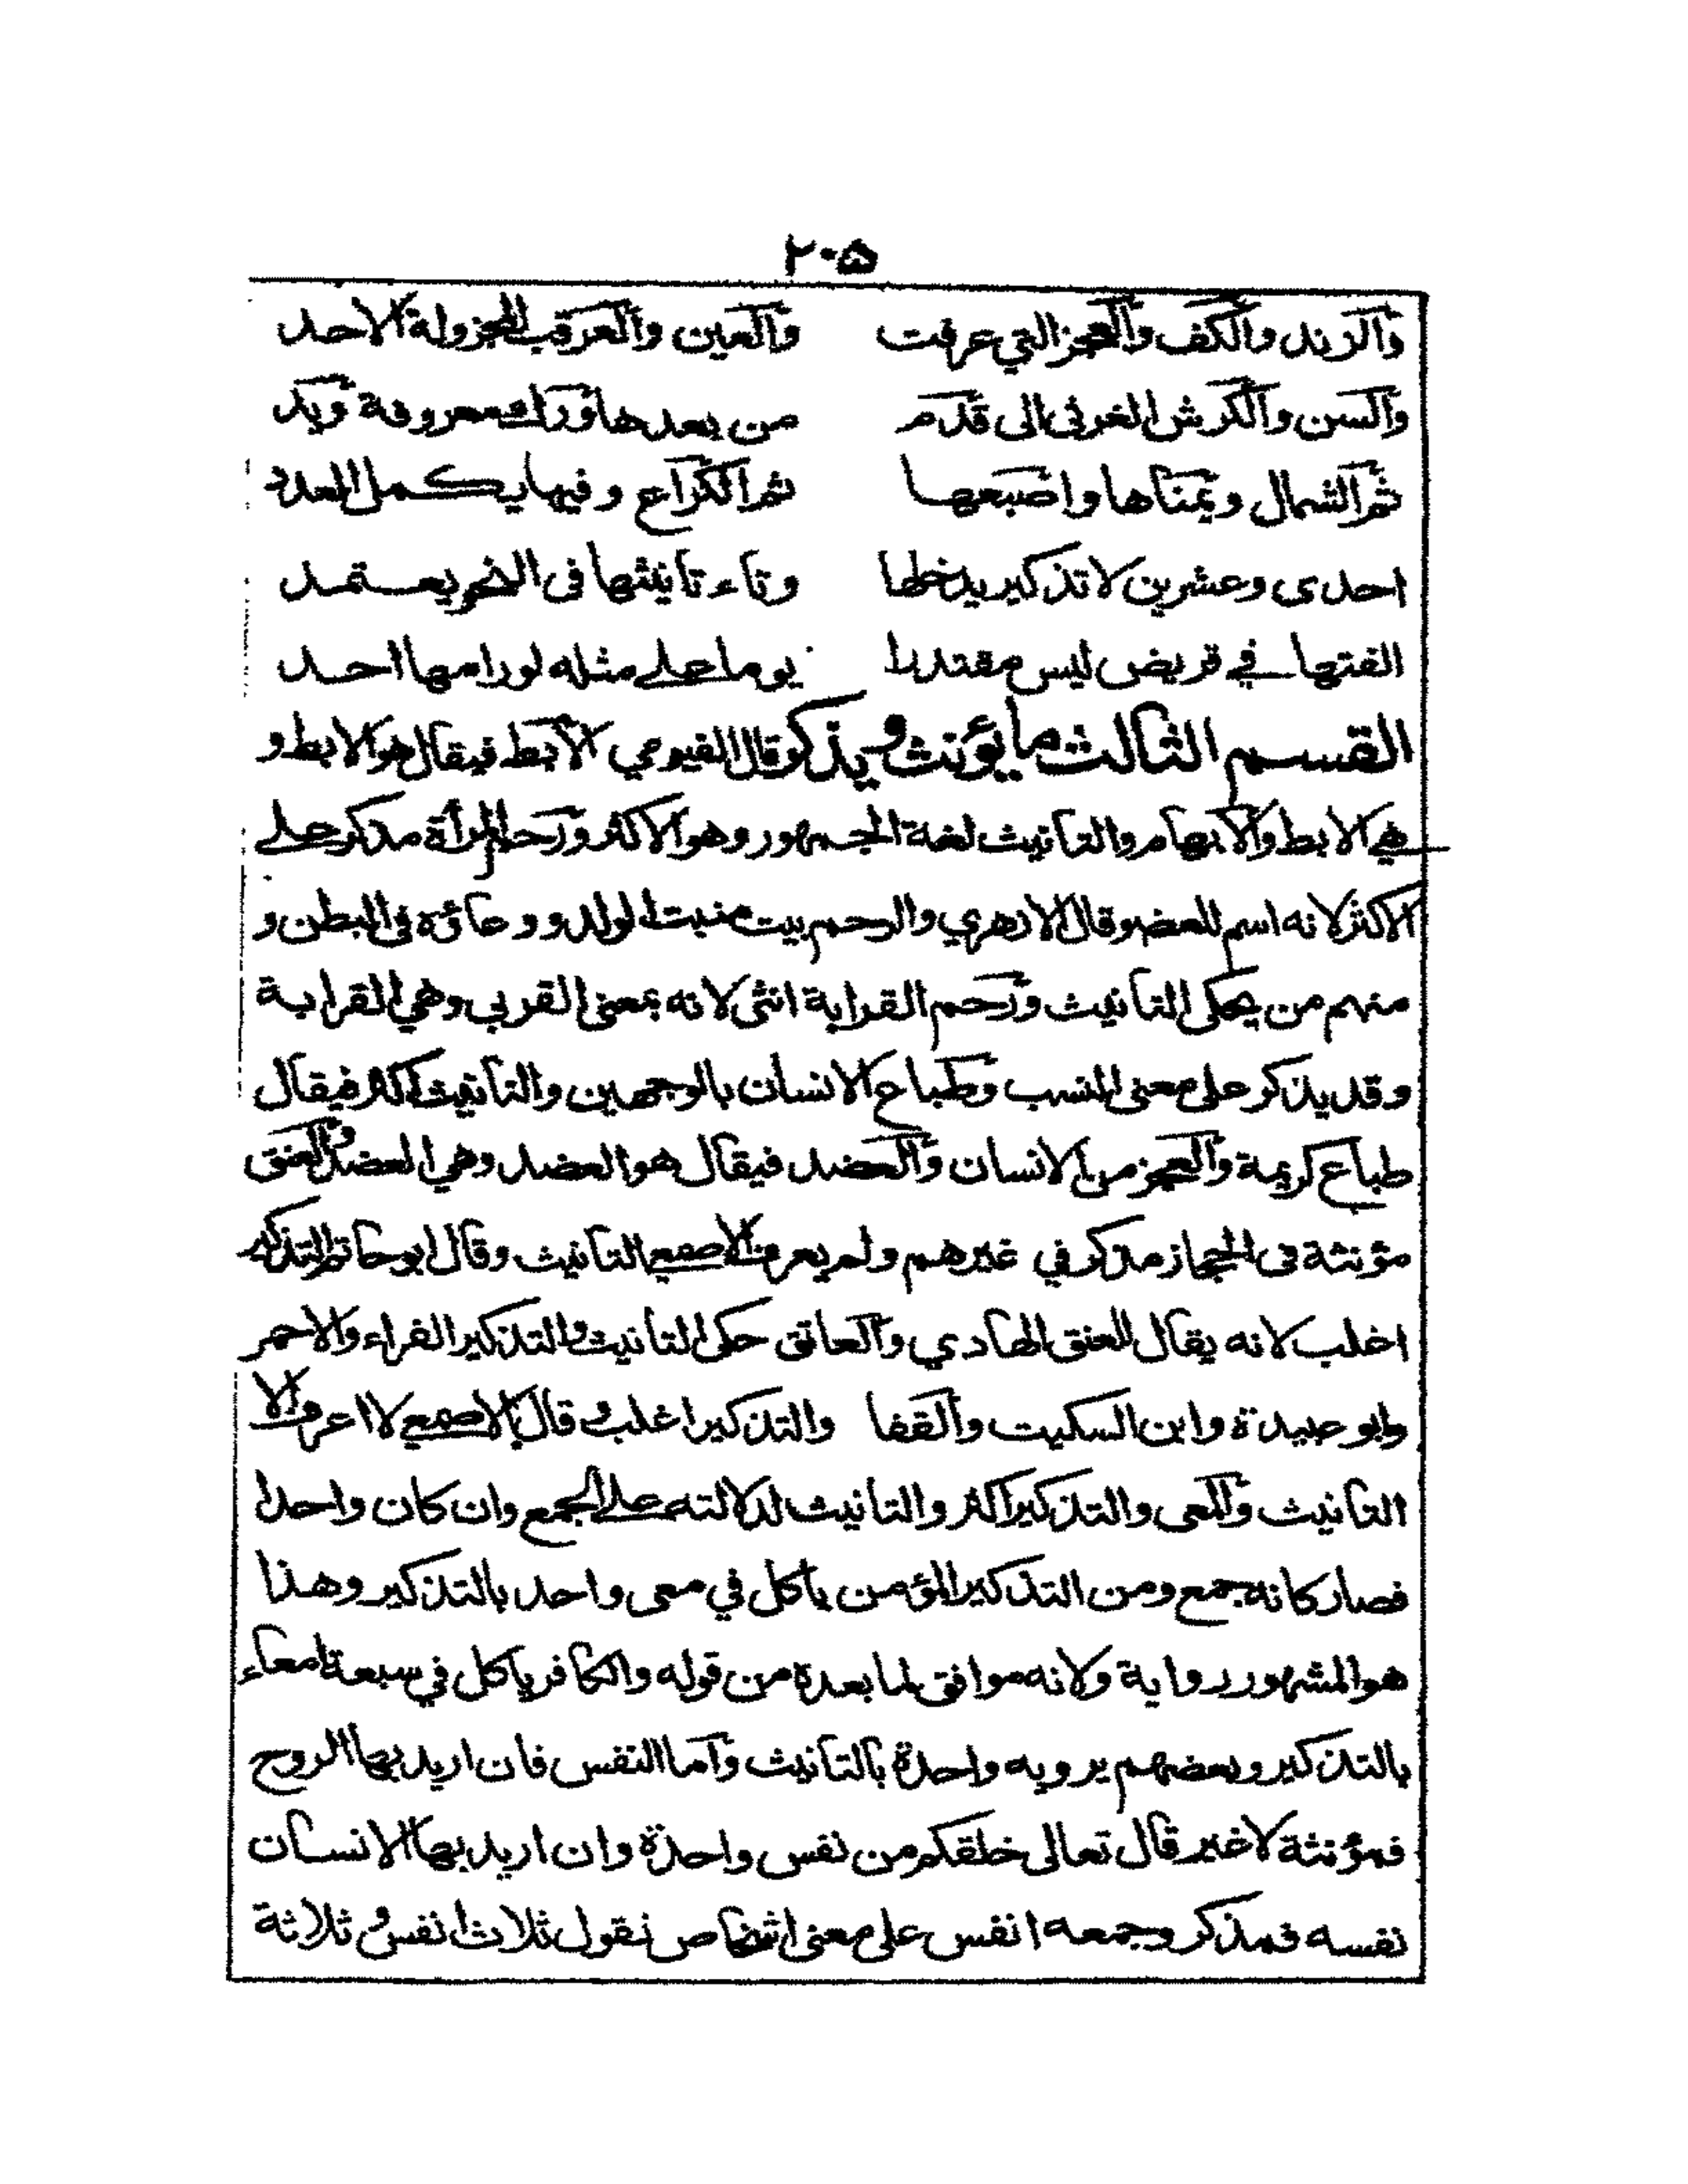 ٢٠٥
والزند والكف والعجز التي عرفت والعين والعرقب المجزولة الاحد
والسن والكرش الغرثى الى قدم من بعدها ورك معروفة ويد
ثم الشمال ويمناها واصبعها ثم الكراع وفيها يكمل العدد
احدى وعشرين لا تذكير يدخلها وتاء تانيثها فى النحو يعتمد
الفتها في قريض ليس مقتدرا يوما على مثله لو رامها احد
القسم الثالث ما يؤنث ويذكر قال الفيومي الابط فيقال هو الابط و
هي الابط والابهام والتانيث لغة الجمهور وهو الاكثر ورحم المرأة مذكر على
الاكثر لانه اسم للعضو قال الازهري والرحم بيت منبت الولد ووعاؤه فى البطن و
منهم من يحكى التانيث ورحم القرابة انثى لانه بمعنى القربي وهي القرابة
وقد يذكر على معنى النسب وطباع الانسان بالوجهين والتانيث اكثر فيقال
طباع كريمة والعجز من الانسان والعضد فيقال هو العضد وهي العضد والعنق
مؤنثة فى الحجاز مذكر في غيرهم ولم يعرف الاصمعي التانيث وقال ابو حاتم التذكير
اغلب لانه يقال للعنق الهادي والعاتق حكى التانيث والتذكير الفراء والاحمر
وابو عبيدة وابن السكيت والقفا والتذكير اغلب وقال الاصمعي لا اعرف الا
التانيث والمعى والتذكير اكثر والتانيث لدلالته على الجمع وان كان واحدا
فصار كانه جمع ومن التذكير المؤمن ياكل في معى واحد بالتذكير وهذا
هو المشهور رواية ولانه موافق لما بعده من قوله والكافر ياكل في سبعة امعاء
بالتذكير وبعضهم يرويه واحدة بالتانيث واما النفس فان اريد بها الروح
فمؤنثة لا غير قال تعالى خلقكم من نفس واحدة وان اريد بها الانسان
نفسه فمذكر وجمعه انفس على معنى اشخاص نقول ثلاث انفس وثلاثة